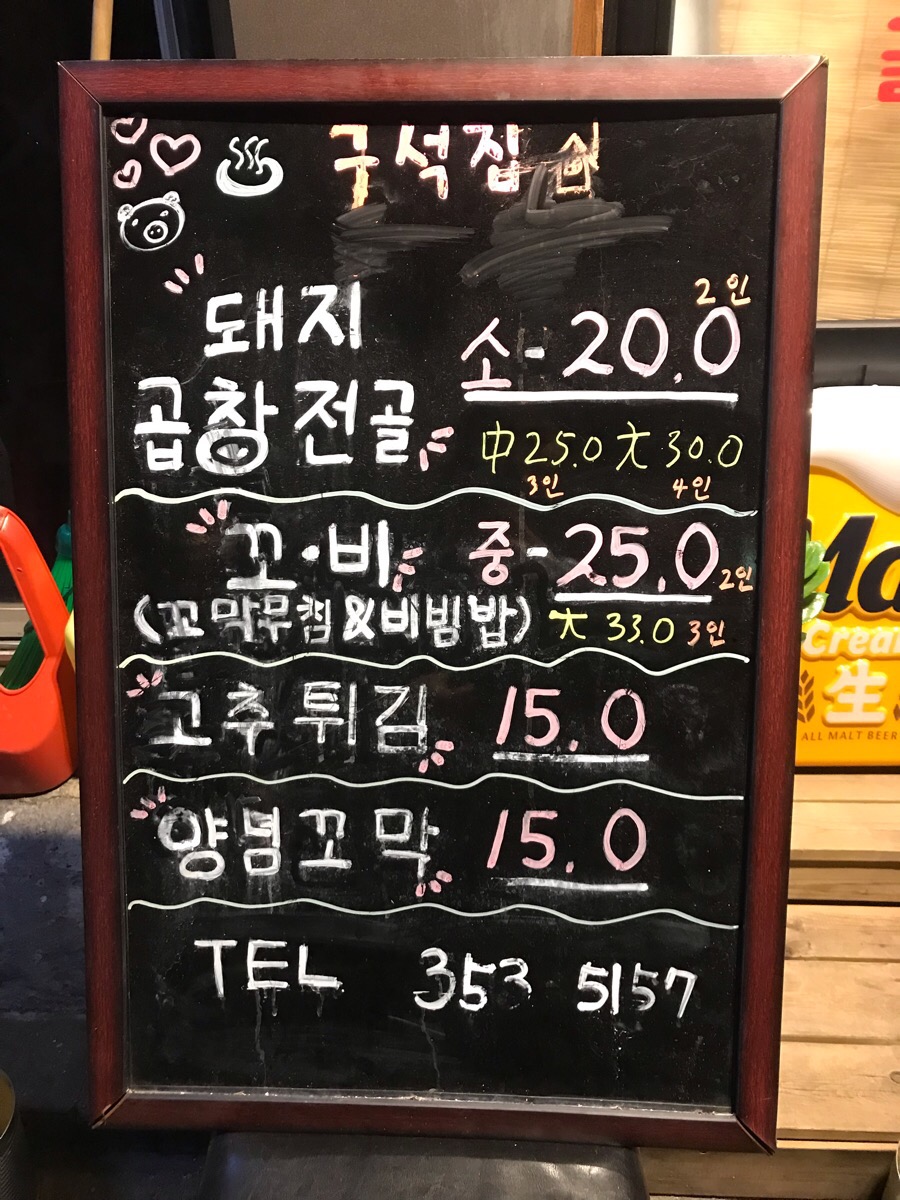 구석집
돼지
곱창전골
2인
소-20.0
中 25.0 大 30.0
3인 4인
꼬·비 중-25.0 2인
(꼬막무침&비빔밥) 大 33.0 3인
고추튀김 15.0
양념꼬막 15.0
TEL 353 5157
Crea
生
ALL MALT BEER